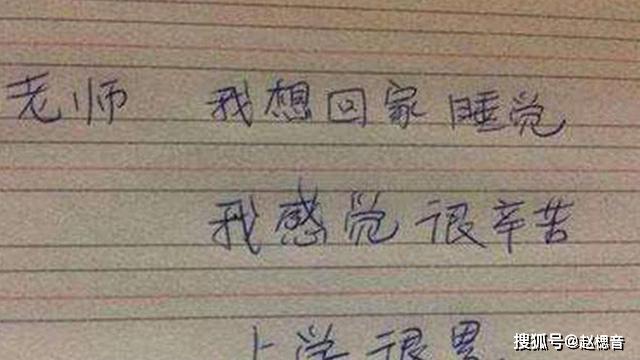 老师 我想回家睡觉
我感觉很辛苦
上学很累
搜狐号@赵楒音